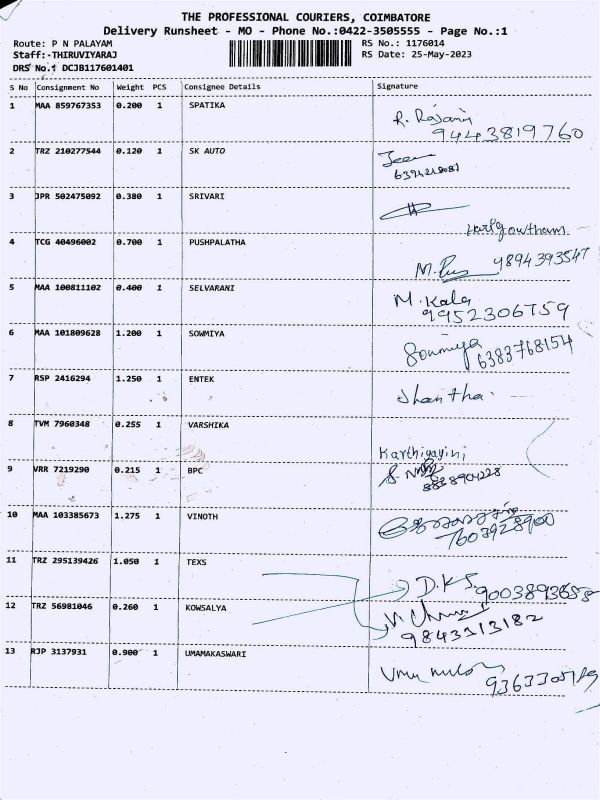 THE PROFESSIONAL COURIERS, COIMBATORE
Delivery Runsheet - MO - Phone No.:0422-3505555 - Page No.:1
Route: P N PALAYAM RS No.: 1176014
Staff:-THIRUVIYARAJ RS Date: 25-May-2023
DRS No.: DCJB117601401
S No Consignment No Weight PCS Consignee Details Signature
1 MAA 859767353 0.200 1 SPATIKA
R. Rajani
9443819760
2 TRZ 210277544 0.120 1 SK AUTO
3 JPR 502475092 0.380 1 SRIVARI
Harigowtham
4 TCG 40496002 0.700 1 PUSHPALATHA
9894393547
5 MAA 100811102 0.400 1 SELVARANI
M. Kala
9952306759
6 MAA 101809628 1.200 1 SOWMIYA
Sowmiya 6383768154
7 RSP 2416294 1.250 1 ENTEK
Shantha
8 TVM 7960348 0.255 1 VARSHIKA
Karthigayini
9 VRR 7219290 0.215 1 BPC
10 MAA 103385673 1.275 1 VINOTH
7603928900
11 TRZ 295139426 1.050 1 TEXS
D.K.S. 9003893658
12 TRZ 56981046 0.260 1 KOWSALYA
9843313182
13 RJP 3137931 0.900 1 UMAMAKASWARI